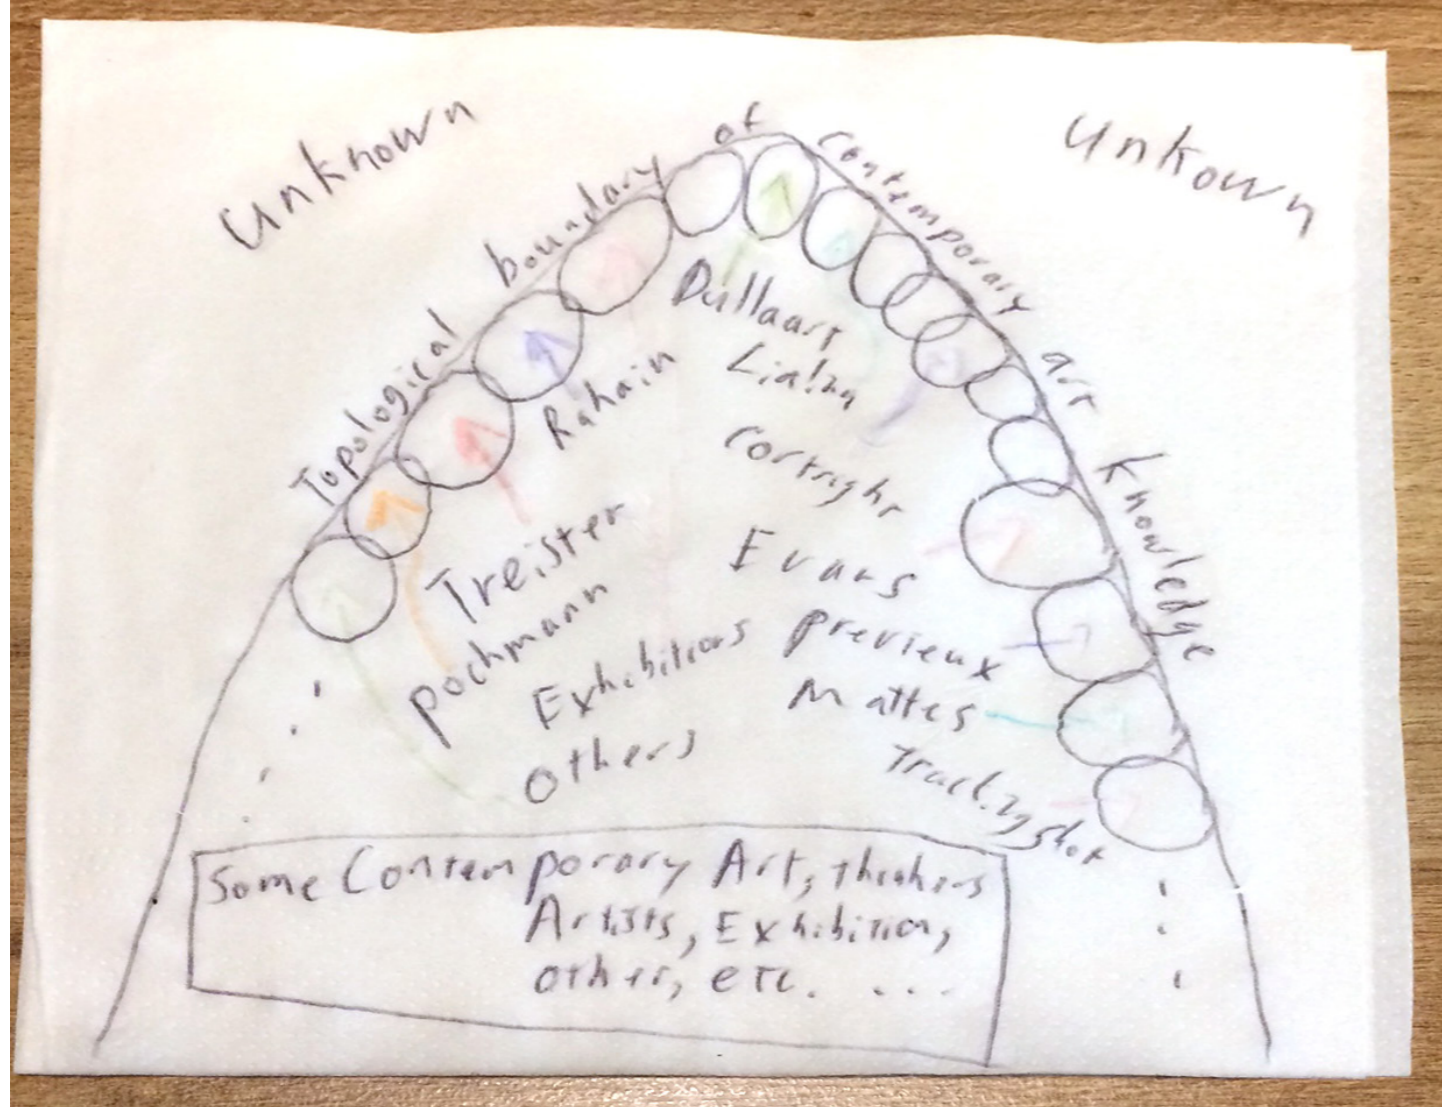 Unknown
Unkown
Topological boundary of Contemporary art Knowledge
Dullaart
Rahain
Cortright
Treister
Evans
pochmann
Exhibitions
previeux
Mattes
Others
Some Contemporary Art, thinkers
Artists, Exhibition,
other, etc. ...